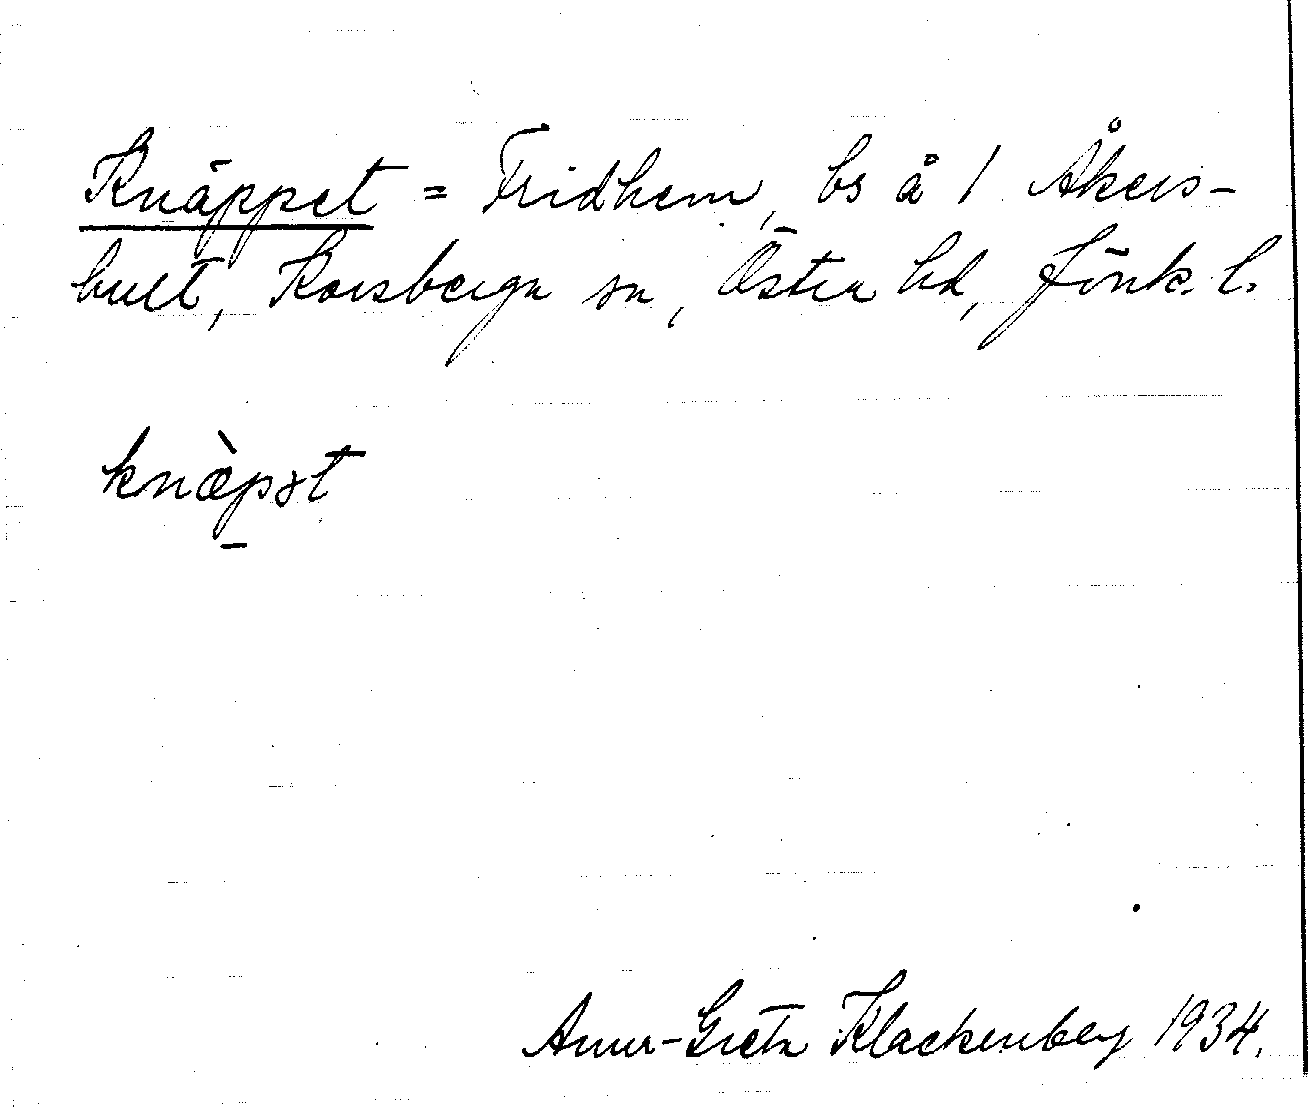 Knäppet = Fridhem, bs å 1 Åkers-
hult, Korsberga sn, Östra hd, Jönk. l.
knæ̀p̠ət
Anna-Greta Klackenberg 1934.